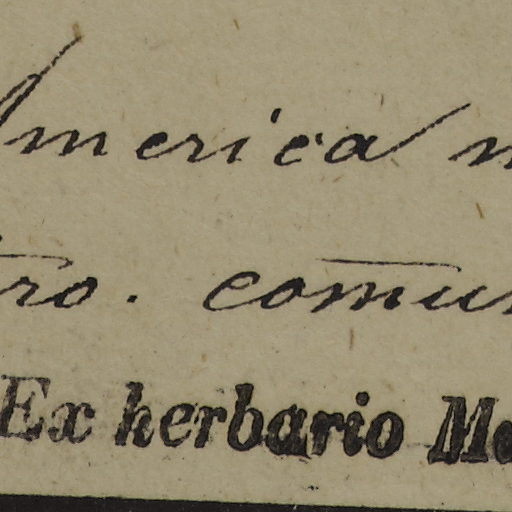 America
ro. com̅u
Ex herbario